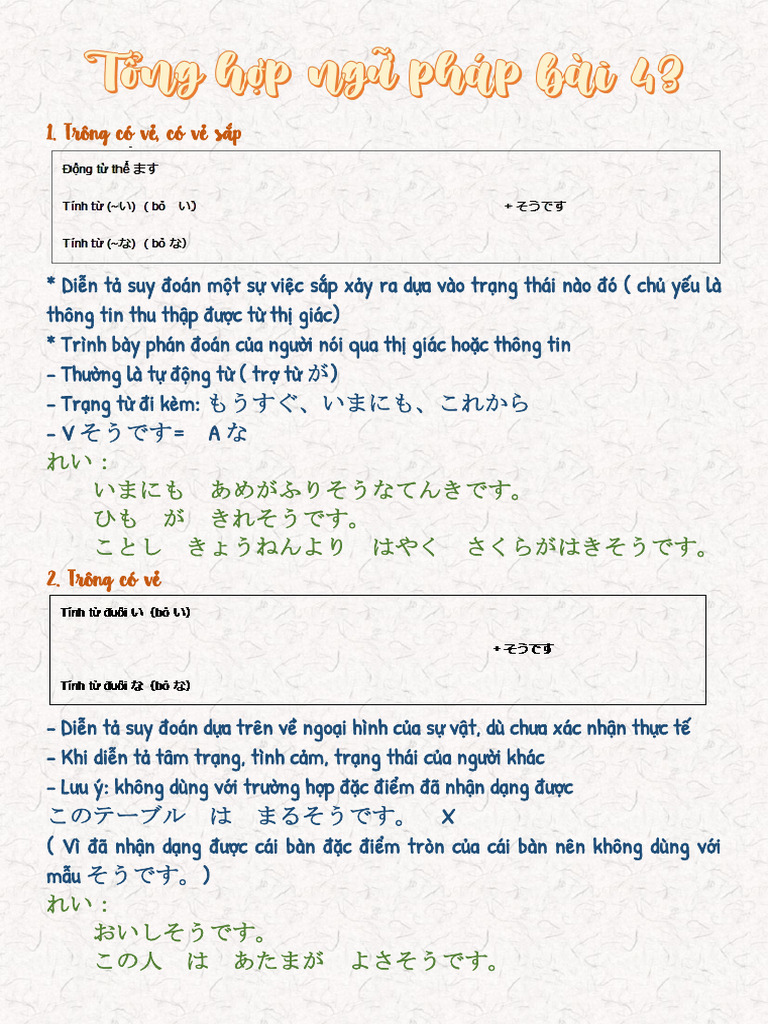 Tổng hợp ngữ pháp bài 43
1. Trông có vẻ, có vẻ sắp
Động từ thể ます
Tính từ (~い) ( bỏ い)
+ そうです
Tính từ (~な) ( bỏ な)
* Diễn tả suy đoán một sự việc sắp xảy ra dựa vào trạng thái nào đó ( chủ yếu là
thông tin thu thập được từ thị giác)
* Trình bày phán đoán của người nói qua thị giác hoặc thông tin
- Thường là tự động từ ( trợ từ が)
- Trạng từ đi kèm: もうすぐ、いまにも、これから
- V そうです= A な
れい：
いまにも あめがふりそうなてんきです。
ひも が きれそうです。
ことし きょうねんより はやく さくらがはきそうです。
2. Trông có vẻ
Tính từ đuôi い (bỏ い)
+ そうです
Tính từ đuôi な (bỏ な)
- Diễn tả suy đoán dựa trên về ngoại hình của sự vật, dù chưa xác nhận thực tế
- Khi diễn tả tâm trạng, tình cảm, trạng thái của người khác
- Lưu ý: không dùng với trường hợp đặc điểm đã nhận dạng được
このテーブル は まるそうです。 X
( Vì đã nhận dạng được cái bàn đặc điểm tròn của cái bàn nên không dùng với
mẫu そうです。)
れい：
おいしそうです。
この人 は あたまが よさそうです。